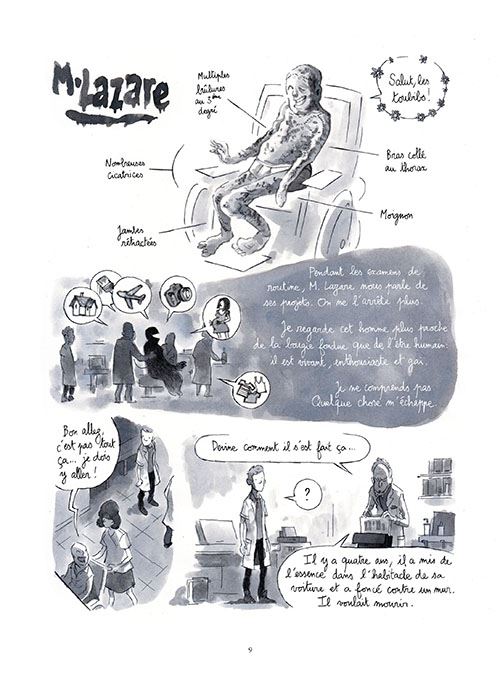 M. Lazare
Multiples
brûlures
au 3ème
degré
Salut, les
toubibs !
Nombreuses
cicatrices
Bras collé
au thorax
Moignon
Jambes
rétractées
Pendant les examens de
routine, M. Lazare nous parle de
ses projets. On ne l'arrête plus.
Je regarde cet homme plus proche
de la bougie fondue que de l'être humain :
il est vivant, enthousiaste et gai.
Je ne comprends pas.
Quelque chose m'échappe.
Bon allez,
c'est pas tout
ça... je dois
y aller !
Devine comment il s'est fait ça...
?
Il y a quatre ans, il a mis de
l'essence dans l'habitacle de sa
voiture et a foncé contre un mur.
Il voulait mourir.
9